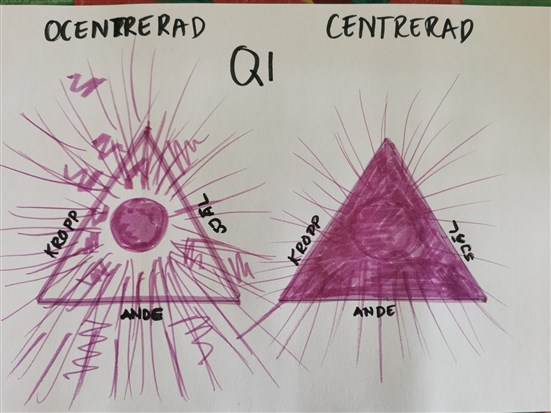 OCENTRERAD
CENTRERAD
Q1
KROPP
SJÄL
ANDE
KROPP
SJÄL
ANDE